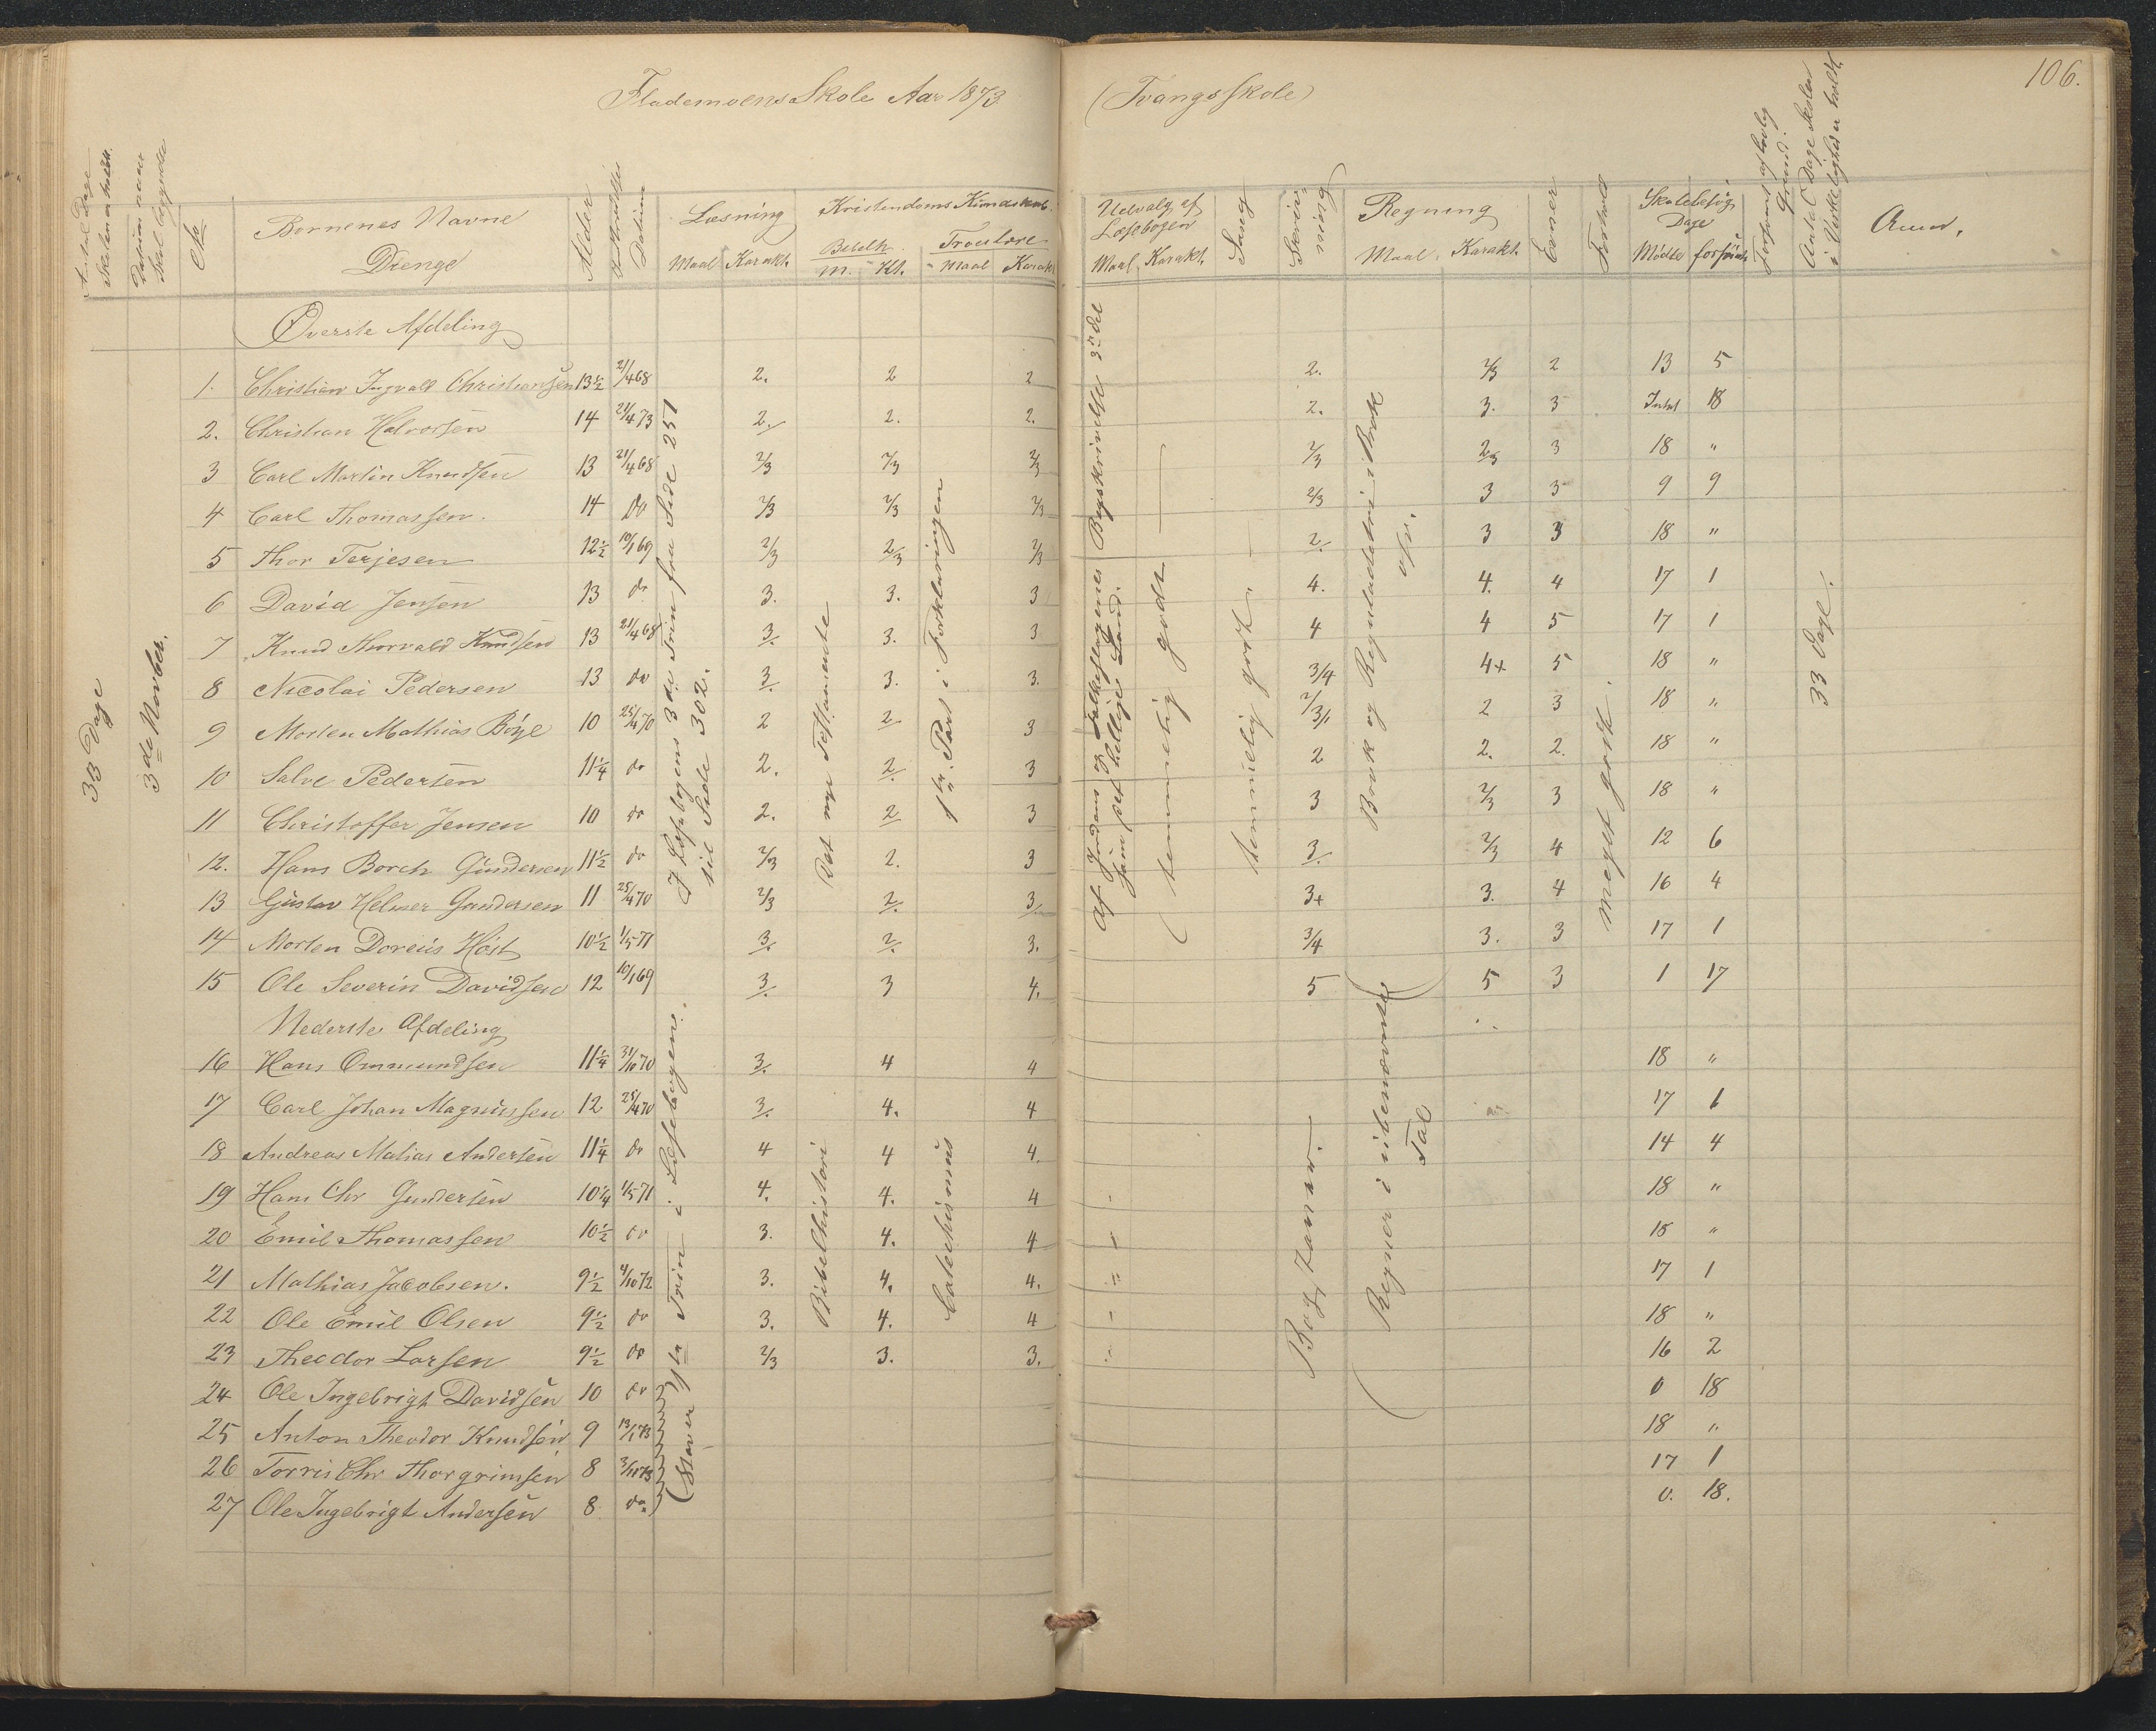 106.
Flademoens Skole Aar 1873 (Tvangsskole)
Antal Dage Skolen er holdt.
Datum naar Skol. begyndte
No
Børnenes Navne
Drenge
Alder
Datum
Læsning
Maal Karakt.
Kristendoms Kundskab.
Bibelh.
M. Kt.
Troeslære
Maal Karakt
Udvalg af Læsebogen
Maal Karakt.
Sang
Skrivning
Regning
Maal Karakt.
Evner
Forhold
Skolebesøg
Dage
Mødte forsømte
Forsømt af lovlig Grund.
Antal Dage Skolen i Virkeligheden holdt
Anm.
33 Dage
3de Novber.
Øverste Afdeling
1. Christian Ingvald Christiansen 13½ 21/4 68 2. 2 2 2. 2/3 2 13 5
2. Christian Halvorsen 14 21/4 73 2. 2. 2. 2. 3. 3 Intet 18
3 Carl Martin Knudsen 13 21/4 68 2/3 2/3 2/3 2/3 2/3 3 18 "
4 Carl Thomassen. 14 do 2/3 2/3 2/3 2/3 3 3 9 9
5 Thor Terjesen 12½ 10/1 69 2/3 2/3 2/3 2. 3 3 18 "
6 David Jensen 13 do 3. 3. 3 4. 4. 4 17 1
7 Knud Thorvald Knudsen 13 21/4 68 3. 3. 3 4 4 5 17 1
8 Nicolai Pedersen 13 do 3. 3. 3. 3/4 4+ 5 18 "
9 Morten Mathias Böye 10 25/4 70 2 2 3 2/3 2 3 18 "
10 Salve Pedersen 11¼ do 2. 2. 3 2 2. 2. 18 "
11 Christoffer Jensen 10 do 2. 2 3 3 2/3 3 18 "
12. Hans Borch Gundersen 11½ do 2/3 2. 3 3. 2/3 4 12 6
13 Gustav Helmer Gundersen 11 25/4 70 2/3 2. 3. 3+ 3. 4 16 4
14 Morten Doreus Höst 10½ 1/5 71 3. 2. 3. 3/4 3. 3 17 1
15 Ole Severin Davidsen 12 10/1 69 3. 3 4. 5 5 3 1 17
I Læsebogens 3die Trin fra Side 251 til Side 302.
Det nye Testamente
1ste Part i Forklaringen
af Jordens og Folkeslagenes Beskrivelse 3die Del
Som det hellige Land.
temmelig godt
temmelig godt
Brøk og Reguladetri i Brøk osv.
meget godt.
33 Dage.
Nederste Afdeling
16 Hans Ommundsen 11¼ 31/10 70 3. 4 4 18 "
17 Carl Johan Magnussen 12 25/4 70 3. 4. 4 17 1
18 Andreas Matias Andersen 11¼ do 4 4 4. 14 4
19 Hans Chr Gundersen 10¼ 1/5 71 4. 4. 4 18 "
20 Emil Thomassen 10½ do 3. 4. 4 18 "
21 Mathias Jacobsen. 9½ 4/10 72 3. 4. 4. 17 1
22 Ole Emil Olsen 9½ do 3. 4. 4 18 "
23 Theodor Larsen 9½ do 2/3 3. 3. 16 2
24 Ole Ingebrigt Davidsen 10 do 0 18
25 Anton Theodor Knudsen 9 13/1 73 18 "
26 Torris Chr Thorgrimsen 8 3/11 73 17 1
27 Ole Ingebrigt Andersen 8 do 0. 18.
1ste Trin i Læsebogen.
(Staver
Bibelhistori
Catechismus
Bogstaver.
Regner i ubenævnte Tal